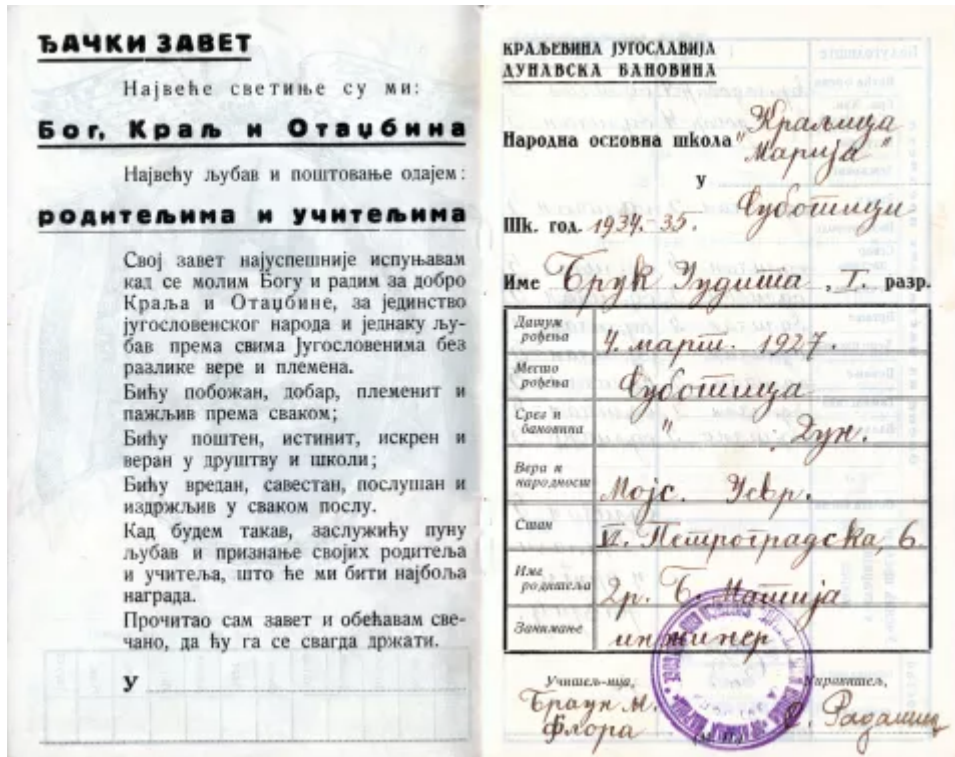 ЂАЧКИ ЗАВЕТ
Највеће светиње су ми:
Бог, Краљ и Отаџбина
Највећу љубав и поштовање одајем:
родитељима и учитељима
Свој завет најуспешније испуњавам
кад се молим Богу и радим за добро
Краља и Отаџбине, за јединство
југословенског народа и једнаку љу-
бав према свима Југословенима без
разлике вере и племена.
Бићу побожан, добар, племенит и
пажљив према сваком;
Бићу поштен, истинит, искрен и
веран у друштву и школи;
Бићу вредан, савестан, послушан и
издржљив у сваком послу.
Кад будем такав, заслужићу пуну
љубав и признање својих родитеља
и учитеља, што ће ми бити најбоља
награда.
Прочитао сам завет и обећавам све-
чано, да ћу га се свагда држати.
У
КРАЉЕВИНА ЈУГОСЛАВИЈА
ДУНАВСКА БАНОВИНА
Народна основна школа "Краљица
Марија"
у
Суботици
Шк. год. 1934.-35.
Име Брук Јудита, I. разр.
Датум рођења 4. март. 1927.
Место рођења Суботица
Срез и бановина " Дун.
Вера и народност Мојс. Јевр.
Стан VI. Петроградска, 6.
Име родитеља Др. Б. Матија
Занимање инжињер
Учитељ-ица, Управитељ,
Браун М.
Флора